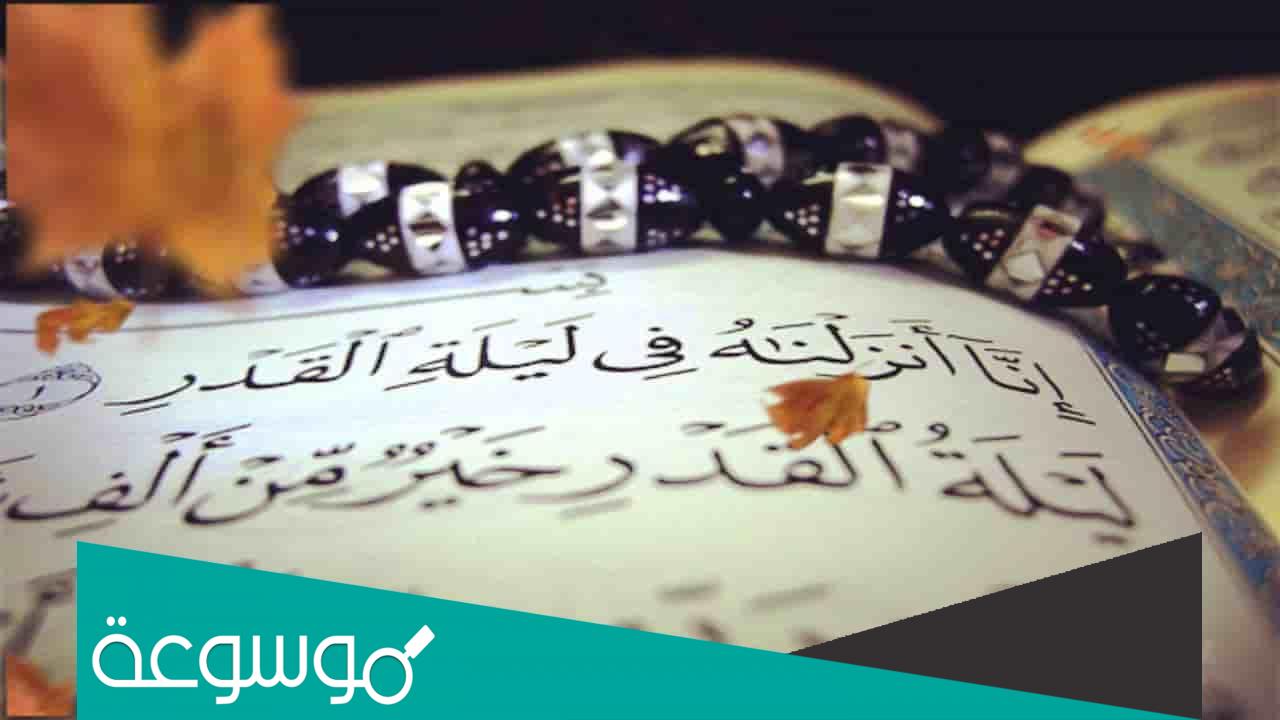 إِنَّآ أَنزَلْنَـٰهُ فِى لَيْلَةِ ٱلْقَدْرِ ١
لَيْلَةُ ٱلْقَدْرِ خَيْرٌ مِّنْ أَلْفِ
موسوعة